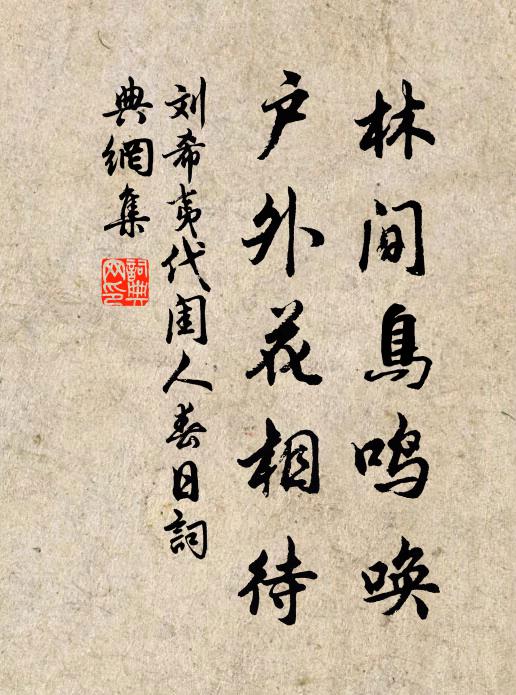 林间鳥鸣唤
户外花相待
刘希夷代闺人春日詞
典網集
詞典网印